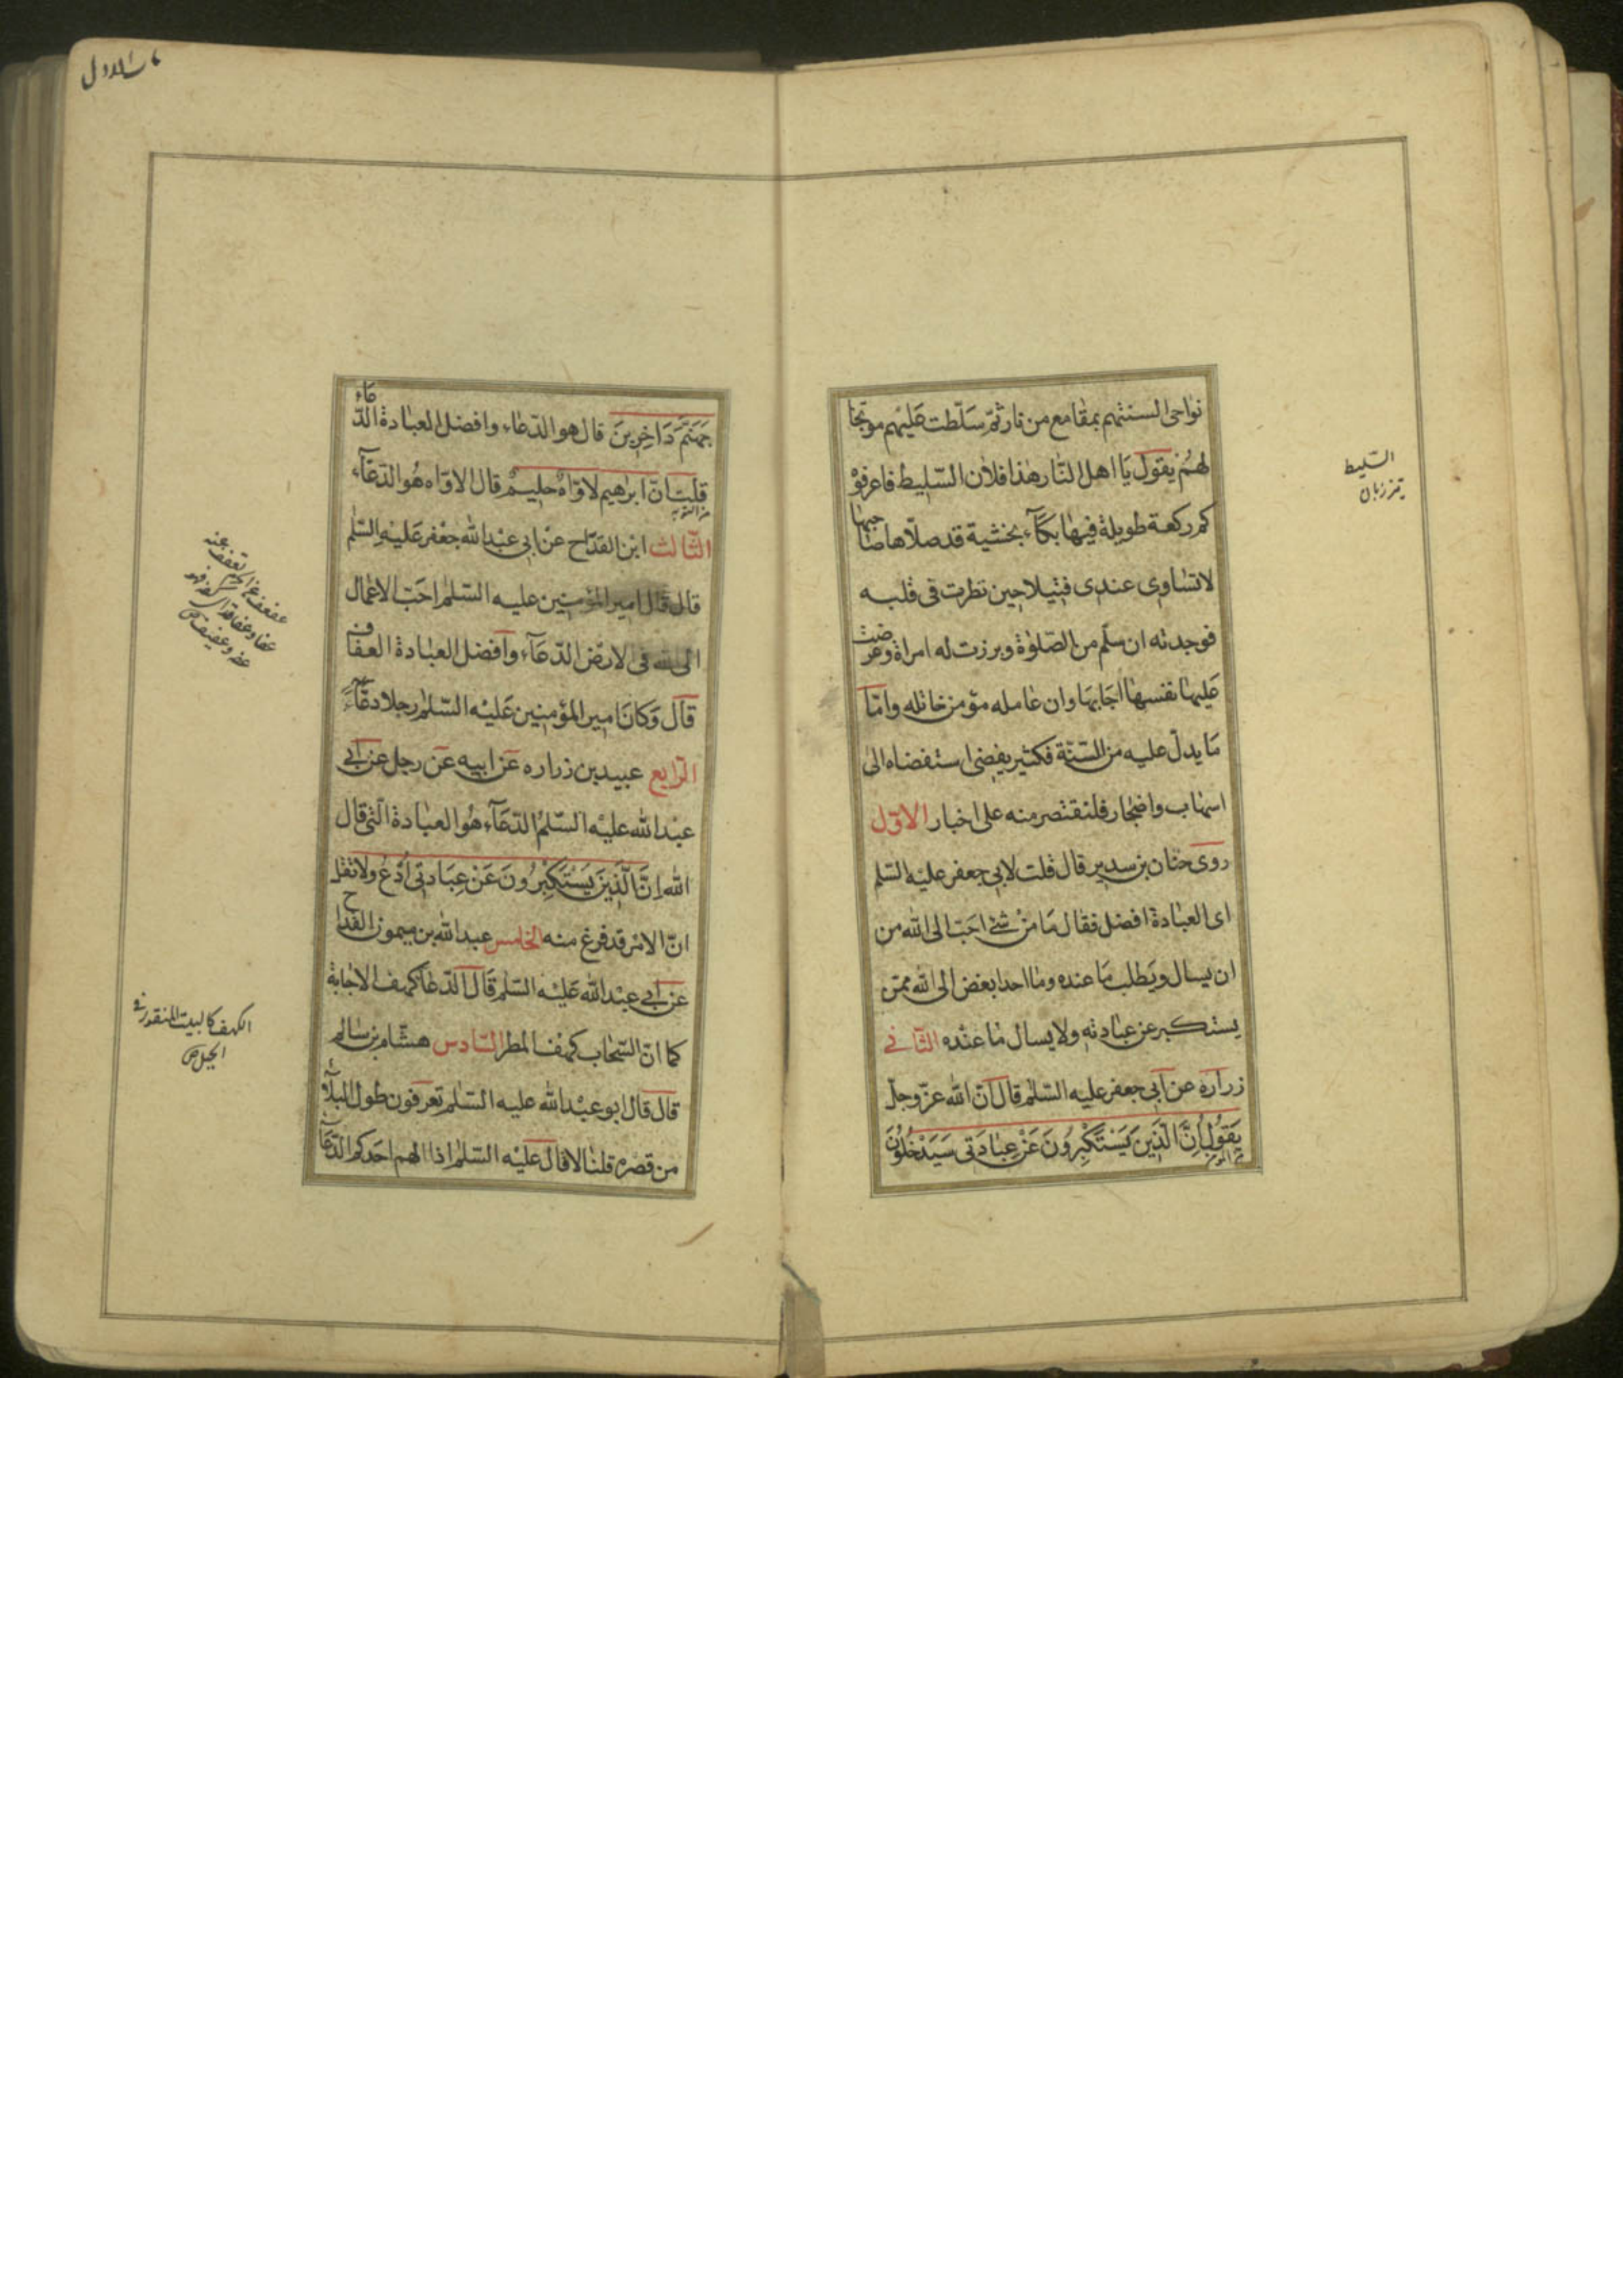 نواحى السنتهم بمقامع من نار ثمّ سلّطت عليهم موبّخا
لهم يقول يا اهل النّار هذا فلان السّليط فاعرفوه
كم ركعة طويلة فيها بكآء بخشية قد صلّاها صاحبها
لا تساوى عندى فتيلا حين نظرت فى قلبه
فوجدته ان سلّم من الصّلوة وبرزت له امراة وعرضت
عليها نفسها اجابها وان عامله مؤمن خاتله وامّا
ما يدلّ عليه من السّنّة فكثير يفضى استقضاه الى
اسهاب واضجار فلنقتصر منه على اخبار الاوّل
روى حنان بن سدير قال قلت لابى جعفر عليه السّلم
اى العبادة افضل فقال ما من شئ احبّ الى الله من
ان يسال ويطلب ما عنده وما احد ابغض الى الله ممّن
يستكبر عن عبادته ولا يسال ما عنده الثّانى
زرارة عن ابى جعفر عليه السّلم قال انّ الله عزّ وجلّ
يَقُولُ اِنَّ الَّذِينَ يَسْتَكْبِرُونَ عَنْ عِبَادَتى سَيَدْخُلُونَ
السّليط
تيز زبان
جَهَنَّمَ دَاخِرِينَ قال هو الدّعاء وافضل العبادة الدّعاء
قلت انّ ابرهيم لاوّاه حليم قال الاوّاه هو الدّعّآء
من التوبه
الثّالث ابن القدّاح عن ابى عبد الله جعفر عليه السّلم
قال قال امير المؤمنين عليه السّلم احبّ الاعمال
الى الله فى الارض الدّعآء وافضل العبادة العفاف
قال وكان امير المؤمنين عليه السّلم رجلا دعّآء
الرّابع عبيد بن زراره عن ابيه عن رجل عن ابى
عبد الله عليه السّلم الدّعآء هو العبادة الّتى قال
الله اِنَّ الَّذِينَ يَسْتَكْبِرُونَ عَنْ عِبَادَتى اُدْعُ ولا تقل
انّ الامر قد فرغ منه الخامس عبد الله بن ميمون القداح
عن ابى عبد الله عليه السّلم قال الدّعا كهف الاجابة
كما انّ السّحاب كهف المطر السّادس هشام بن سالم
قال قال ابو عبد الله عليه السّلم تعرفون طول البلآء
من قصره قلنا لا قال عليه السّلم اذا الهم احدكم الدّعآء
الكهف كالبيت المنقور فى
الجبل ص